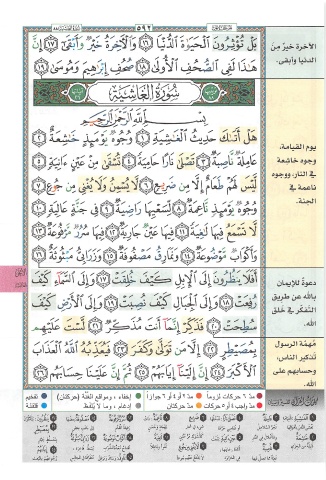 ٥٩٢
بَلْ تُؤْثِرُونَ ٱلْحَيَوٰةَ ٱلدُّنْيَا ١٦ وَٱلْءَاخِرَةُ خَيْرٌ وَأَبْقَىٰٓ ١٧ إِنَّ
هَـٰذَا لَفِى ٱلصُّحُفِ ٱلْأُولَىٰ ١٨ صُحُفِ إِبْرَٰهِيمَ وَمُوسَىٰ ١٩
سُورَةُ الْغَاشِيَةِ
بِسْمِ ٱللَّهِ ٱلرَّحْمَـٰنِ ٱلرَّحِيمِ
هَلْ أَتَىٰكَ حَدِيثُ ٱلْغَـٰشِيَةِ ١ وُجُوهٌ يَوْمَئِذٍ خَـٰشِعَةٌ ٢
عَامِلَةٌ نَّاصِبَةٌ ٣ تَصْلَىٰ نَارًا حَامِيَةً ٤ تُسْقَىٰ مِنْ عَيْنٍ ءَانِيَةٍ ٥
لَّيْسَ لَهُمْ طَعَامٌ إِلَّا مِن ضَرِيعٍ ٦ لَّا يُسْمِنُ وَلَا يُغْنِى مِن جُوعٍ ٧
وُجُوهٌ يَوْمَئِذٍ نَّاعِمَةٌ ٨ لِّسَعْيِهَا رَاضِيَةٌ ٩ فِى جَنَّةٍ عَالِيَةٍ ١٠
لَّا تَسْمَعُ فِيهَا لَـٰغِيَةً ١١ فِيهَا عَيْنٌ جَارِيَةٌ ١٢ فِيهَا سُرُرٌ مَّرْفُوعَةٌ ١٣
وَأَكْوَابٌ مَّوْضُوعَةٌ ١٤ وَنَمَارِقُ مَصْفُوفَةٌ ١٥ وَزَرَابِىُّ مَبْثُوثَةٌ ١٦
أَفَلَا يَنظُرُونَ إِلَى ٱلْإِبِلِ كَيْفَ خُلِقَتْ ١٧ وَإِلَى ٱلسَّمَآءِ كَيْفَ
رُفِعَتْ ١٨ وَإِلَى ٱلْجِبَالِ كَيْفَ نُصِبَتْ ١٩ وَإِلَى ٱلْأَرْضِ كَيْفَ
سُطِحَتْ ٢٠ فَذَكِّرْ إِنَّمَآ أَنتَ مُذَكِّرٌ ٢١ لَّسْتَ عَلَيْهِم
بِمُصَيْطِرٍ ٢٢ إِلَّا مَن تَوَلَّىٰ وَكَفَرَ ٢٣ فَيُعَذِّبُهُ ٱللَّهُ ٱلْعَذَابَ
ٱلْأَكْبَرَ ٢٤ إِنَّ إِلَيْنَآ إِيَابَهُمْ ٢٥ ثُمَّ إِنَّ عَلَيْنَا حِسَابَهُم ٢٦
الآخرة خيرٌ من
الدنيا وأبقى.
يوم القيامة،
وجوه خاشعة
في النار، ووجوه
ناعمة في
الجنة.
دعوةٌ للإيمان
بالله عن طريق
التفكّر في خلق
الله.
مُهمّة الرسول
تذكير الناس،
وحسابهم على
الله.
مدّ ٦ حركات لزوماً
مدّ ٢ أو ٤ أو ٦ جوازاً
إخفاء، ومواقع الغُنَّة (حركتان)
تفخيم
مدّ واجب ٤ أو ٥ حركات
مدّ حركتان
إدغام، وما لا يُلفظ
قلقلة